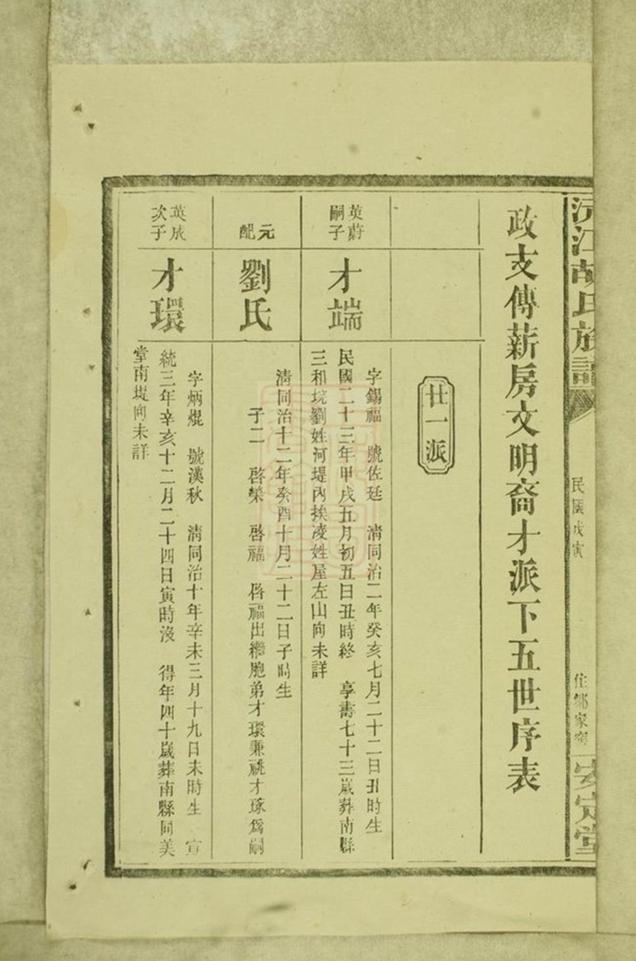 沅江胡氏族譜
民國戊寅
住鄒家窖
安定堂
政支傳薪房文明裔才派下五世序表
廿一派
英蔚
嗣子
才端
字錫福 號佐廷 清同治二年癸亥七月二十二日丑時生
民國二十三年甲戌五月初五日丑時終 享壽七十三歲葬南縣
三和垸劉姓河堤內挨凌姓屋左山向未詳
元
配
劉氏
清同治十二年癸酉十月二十二日子時生
子二 啓榮 啓福 啓福出繼胞弟才環兼祧才琢爲嗣
英成
次子
才環
字炳焜 號漢秋 清同治十年辛未三月十九日未時生 宣
統三年辛亥十二月二十四日寅時沒 得年四十歲葬南縣同美
堂南堤向未詳